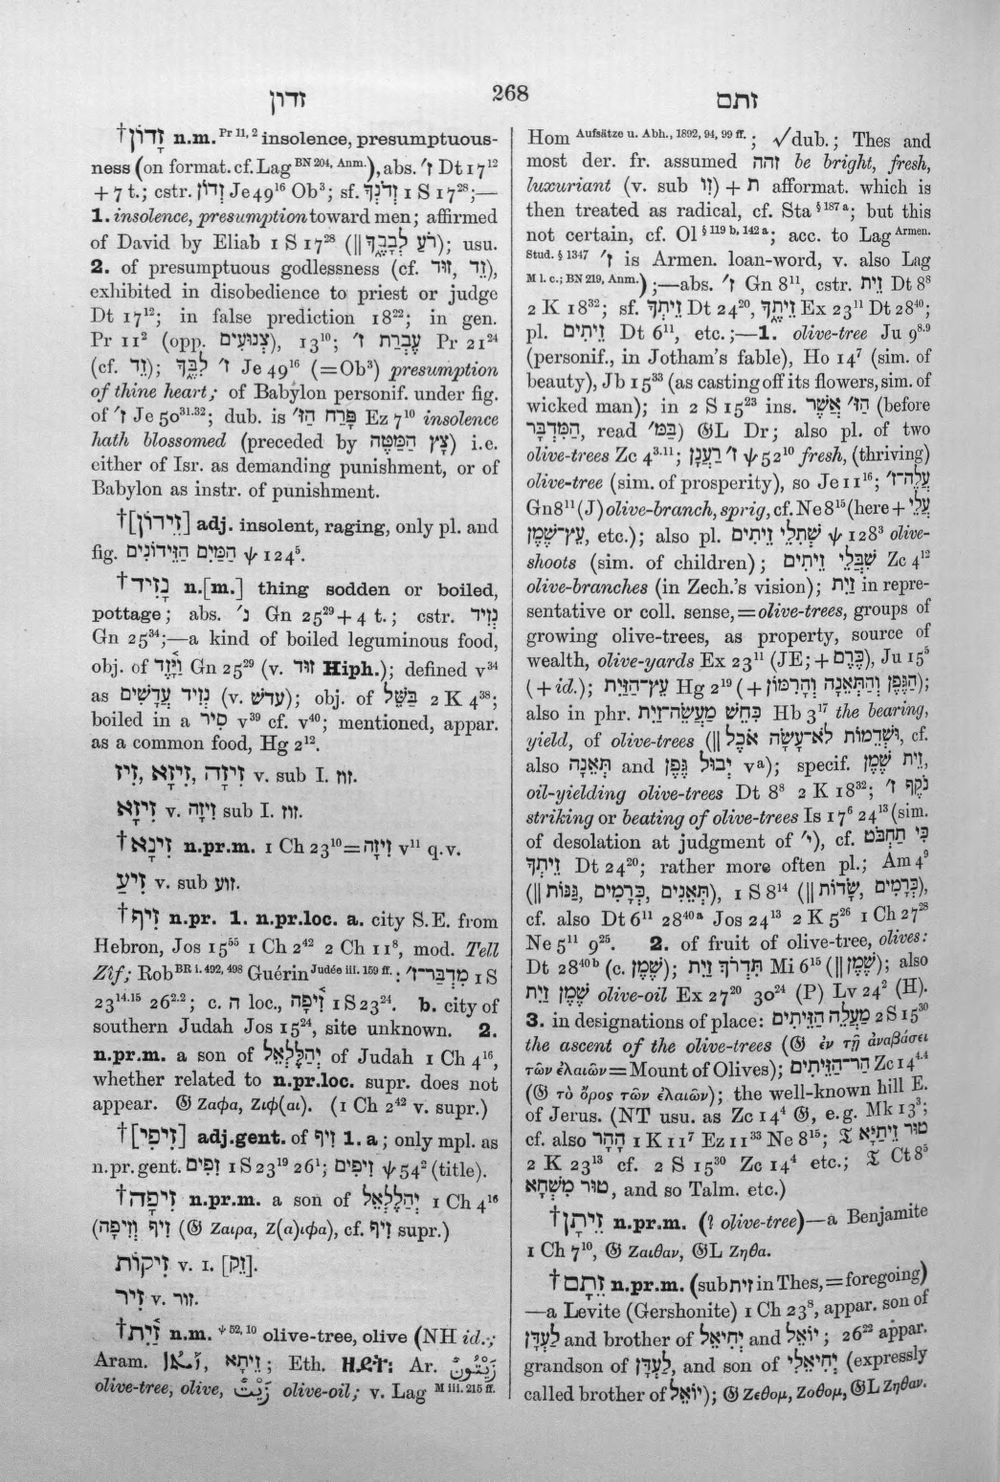 זדון
268
זתם
†זָדוֹן n.m. Pr 11, 2 insolence, presumptuous-
ness (on format. cf. Lag BN 204, Anm.), abs. ז׳ Dt 17¹²
+ 7 t.; cstr. זְדוֹן Je 49¹⁶ Ob³; sf. זְדֹנְךָ 1 S 17²⁸;—
1. insolence, presumption toward men; affirmed
of David by Eliab 1 S 17²⁸ (‖ רֹעַ לְבָבֶךָ); usu.
2. of presumptuous godlessness (cf. זֵד, זוּד),
exhibited in disobedience to priest or judge
Dt 17¹²; in false prediction 18²²; in gen.
Pr 11² (opp. צְנוּעִים), 13¹⁰; עֶבְרַת ז׳ Pr 21²⁴
(cf. זֵד); ז׳ לִבֶּךָ Je 49¹⁶ (=Ob³) presumption
of thine heart; of Babylon personif. under fig.
of ז׳ Je 50³¹·³²; dub. is פָּרַח הַזּ׳ Ez 7¹⁰ insolence
hath blossomed (preceded by צָץ הַמַּטֶּה) i.e.
either of Isr. as demanding punishment, or of
Babylon as instr. of punishment.
†[זֵידוֹן] adj. insolent, raging, only pl. and
fig. הַמַּיִם הַזֵּידוֹנִים ψ 124⁵.
†נָזִיד n.[m.] thing sodden or boiled,
pottage; abs. נ׳ Gn 25²⁹ + 4 t.; cstr. נְזִיד
Gn 25³⁴;—a kind of boiled leguminous food,
obj. of וַיָּזֶד Gn 25²⁹ (v. זוּד Hiph.); defined v³⁴
as נְזִיד עֲדָשִׁים (v. עדשׁ); obj. of בִּשֵּׁל 2 K 4³⁸;
boiled in a סִיר v³⁹ cf. v⁴⁰; mentioned, appar.
as a common food, Hg 2¹².
זִיז, זִיזָא, זִיזָה v. sub I. זוז.
זִיזָא v. זִיזָה sub I. זוז.
†זִינָא n.pr.m. 1 Ch 23¹⁰=זִיזָה v¹¹ q.v.
זִיעַ v. sub זוע.
†זִיף n.pr. 1. n.pr.loc. a. city S.E. from
Hebron, Jos 15⁵⁵ 1 Ch 2⁴² 2 Ch 11⁸, mod. Tell
Zîf; Rob BR i. 492, 498 Guérin Judée iii. 159 ff.: מִדְבַּר־ז׳ 1 S
23¹⁴·¹⁵ 26²·²; c. ה loc., זִיפָה 1 S 23²⁴. b. city of
southern Judah Jos 15²⁴, site unknown. 2.
n.pr.m. a son of יְהַלֶּלְאֵל of Judah 1 Ch 4¹⁶,
whether related to n.pr.loc. supr. does not
appear. 𝔊 Ζαφα, Ζιφ(αι). (1 Ch 2⁴² v. supr.)
†[זִיפִי] adj.gent. of זִיף 1. a; only mpl. as
n.pr.gent. זִפִים 1 S 23¹⁹ 26¹; זִיפִים ψ 54² (title).
†זִיפָה n.pr.m. a son of יְהַלֶּלְאֵל 1 Ch 4¹⁶
(זִיף וְזִיפָה (𝔊 Ζαιρα, Ζ(α)ιφα), cf. זִיף supr.)
זִיקוֹת v. 1. [זֵק].
זִיר v. זור.
†זַיִת n.m. ψ 52, 10 olive-tree, olive (NH id.;
Aram. זֵיתָא ; Eth. Ar. زَيْتُونٌ
olive-tree, olive, زَيْتٌ olive-oil; v. Lag M iii. 215 ff.
Hom Aufsätze u. Abh., 1892, 94, 99 ff. ; √dub.; Thes and
most der. fr. assumed זהה be bright, fresh,
luxuriant (v. sub זִו) + ת afformat. which is
then treated as radical, cf. Sta § 187 a; but this
not certain, cf. Ol § 119 b, 142 a; acc. to Lag Armen.
Stud. § 1347 ז׳ is Armen. loan-word, v. also Lag
M l. c.; BN 219, Anm.) ;—abs. ז׳ Gn 8¹¹, cstr. זֵית Dt 8⁸
2 K 18³²; sf. זֵיתְךָ Dt 24²⁰, זֵיתֶךָ Ex 23¹¹ Dt 28⁴⁰;
pl. זֵיתִים Dt 6¹¹, etc.;—1. olive-tree Ju 9⁸·⁹
(personif., in Jotham's fable), Ho 14⁷ (sim. of
beauty), Jb 15³³ (as casting off its flowers, sim. of
wicked man); in 2 S 15²³ ins. הַזּ׳ אֲשֶׁר (before
הַמִּדְבָּר, read בַּמּ׳) 𝔊L Dr; also pl. of two
olive-trees Zc 4³·¹¹; ז׳ רַעֲנָן ψ 52¹⁰ fresh, (thriving)
olive-tree (sim. of prosperity), so Je 11¹⁶; עֲלֵה־ז׳
Gn 8¹¹ (J) olive-branch, sprig, cf. Ne 8¹⁵ (here + עֲלֵי
עֵץ־שֶׁמֶן, etc.); also pl. שְׁתִלֵי זֵיתִים ψ 128³ olive-
shoots (sim. of children); שִׁבֲּלֵי זֵיתִים Zc 4¹²
olive-branches (in Zech.'s vision); זַיִת in repre-
sentative or coll. sense, = olive-trees, groups of
growing olive-trees, as property, source of
wealth, olive-yards Ex 23¹¹ (JE; + כֶּרֶם), Ju 15⁵
(+ id.); עֵץ־הַזַּיִת Hg 2¹⁹ (+ הַגֶּפֶן וְהַתְּאֵנָה וְהָרִמּוֹן);
also in phr. כִּחֵשׁ מַעֲשֵׂה־זַיִת Hb 3¹⁷ the bearing,
yield, of olive-trees (‖ וּשְׁדֵמוֹת לֹא־עָשָׂה אֹכֶל, cf.
also תְּאֵנָה and יְבוּל גֶּפֶן v a); specif. זֵית שֶׁמֶן,
oil-yielding olive-trees Dt 8⁸ 2 K 18³²; נֹקֶף ז׳
striking or beating of olive-trees Is 17⁶ 24¹³ (sim.
of desolation at judgment of י׳), cf. כִּי תַחְבֹּט
זֵיתְךָ Dt 24²⁰; rather more often pl.; Am 4⁹
(‖ תְּאֵנִים, כְּרָמִים, גַּנּוֹת), 1 S 8¹⁴ (‖ כְּרָמִים, שָׂדוֹת),
cf. also Dt 6¹¹ 28⁴⁰ᵃ Jos 24¹³ 2 K 5²⁶ 1 Ch 27²⁸
Ne 5¹¹ 9²⁵. 2. of fruit of olive-tree, olives:
Dt 28⁴⁰ᵇ (c. שֶׁמֶן); תִּדְרֹךְ זַיִת Mi 6¹⁵ (‖ שֶׁמֶן); also
שֶׁמֶן זַיִת olive-oil Ex 27²⁰ 30²⁴ (P) Lv 24² (H).
3. in designations of place: מַעֲלֵה הַזֵּיתִים 2 S 15³⁰
the ascent of the olive-trees (𝔊 ἐν τῇ ἀναβάσει
τῶν ἐλαιῶν=Mount of Olives); הַר־הַזֵּיתִים Zc 14⁴·⁴
(𝔊 τὸ ὄρος τῶν ἐλαιῶν); the well-known hill E.
of Jerus. (NT usu. as Zc 14⁴ 𝔊, e.g. Mk 13³;
cf. also הָהָר 1 K 11⁷ Ez 11²³ Ne 8¹⁵; 𝔗 טוּר זֵיתַיָּא
2 K 23¹³ cf. 2 S 15³⁰ Zc 14⁴ etc.; 𝔗 Ct 8⁵
טוּר מִשְׁחָא, and so Talm. etc.)
†זֵיתָן n.pr.m. (? olive-tree)—a Benjamite
1 Ch 7¹⁰, 𝔊 Ζαιθαν, 𝔊L Ζηθα.
†זֵתָם n.pr.m. (sub זית in Thes, = foregoing)
—a Levite (Gershonite) 1 Ch 23⁸, appar. son of
לַעְדָּן and brother of יְחִיאֵל and יוֹאֵל; 26²² appar.
grandson of לַעְדָּן, and son of יְחִיאֵלִי (expressly
called brother of יוֹאֵל); 𝔊 Ζεθομ, Ζοθομ, 𝔊L Ζηθαν.